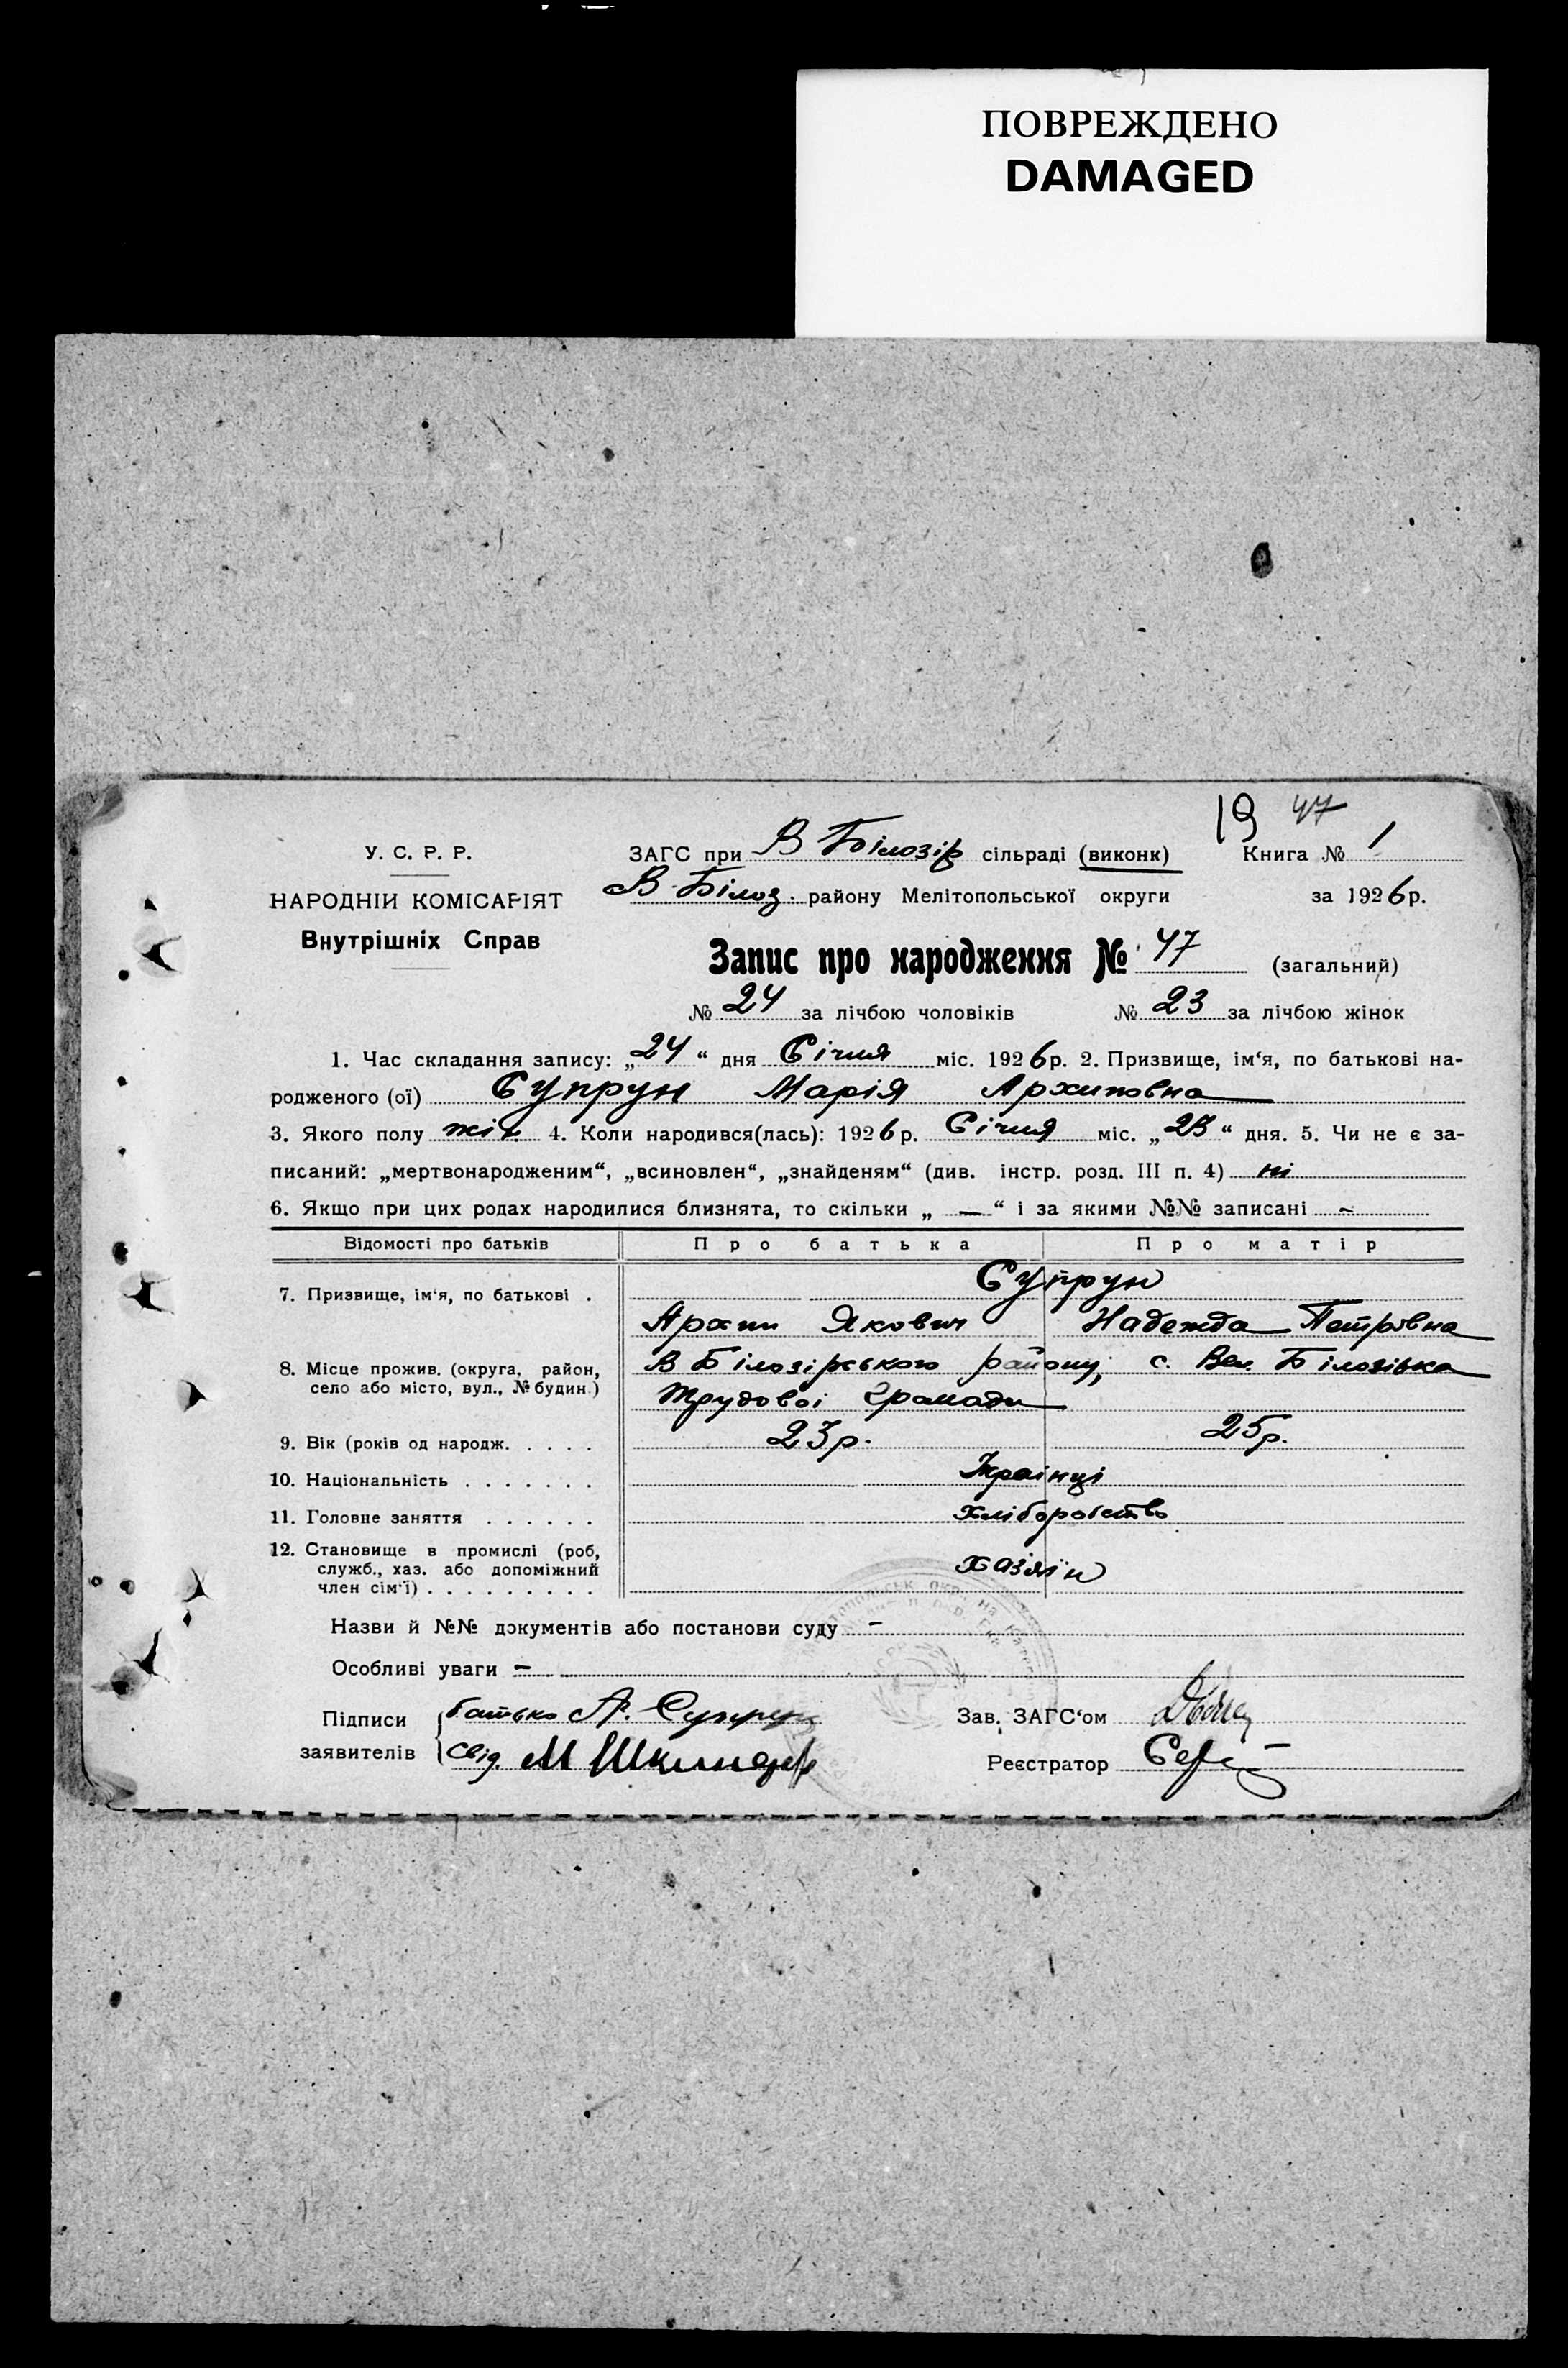 ПОВРЕЖДЕНО
DAMAGED
19 47
У. С. Р. Р.
НАРОДНІЙ КОМІСАРІЯТ
Внутрішніх Справ
ЗАГС при В Білозір сільраді (виконк) Книга № 1
В-Білоз. району Мелітопольської округи за 1926 р.
Запис про народження № 47 (загальний)
№ 24 за лічбою чоловіків № 23 за лічбою жінок
1. Час складання запису: „24“ дня Січня міс. 1926 р. 2. Призвище, ім‘я, по батькові на-
родженого (ої) Супрун Марія Архиповна
3. Якого полу жін 4. Коли народився(лась): 1926 р. Січня міс. „23“ дня. 5. Чи не є за-
писаний: „мертвонародженим“, „всиновлен“, „знайденям“ (див. інстр. розд. III п. 4) ні
6. Якщо при цих родах народилися близнята, то скільки „ — “ і за якими №№ записані -
Відомості про батьків Про батька Про матір
7. Призвище, ім‘я, по батькові . Супрун
Архип Якович Надежда Петрівна
8. Місце прожив. (округа, район, село або місто, вул., № будин.) В Білозірського району, с. Вел. Білозівка
Трудової Громади
9. Вік (років од народж. . . . . 23 р. 25 р.
10. Національність . . . . . . . Україінці
11. Головне заняття . . . . . . хліборобство
12. Становище в промислі (роб, служб., хаз. або допоміжний член сім‘ї) . . . . . . . . . хазяїн
Назви й №№ документів або постанови суду -
Особливі уваги -
Підписи заявителів батько А. Супрун
свід. М
Зав. ЗАГС‘ом
Реєстратор